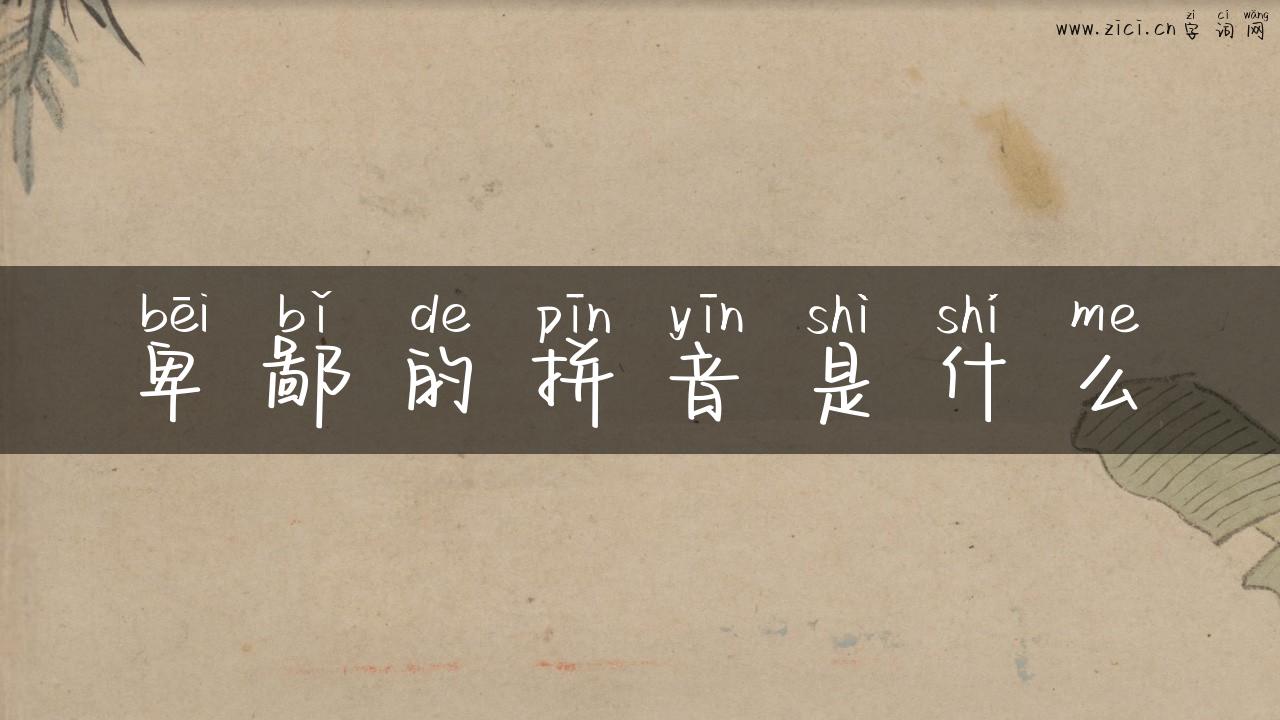 zì cí wǎng
www.zici.cn 字词网
bēi bǐ de pīn yīn shì shí me
卑鄙的拼音是什么